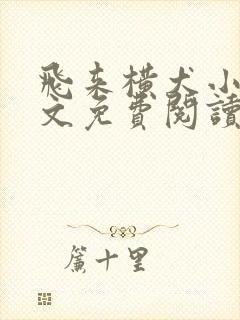 飛来橫犬小
文免費閱讀
簾十里